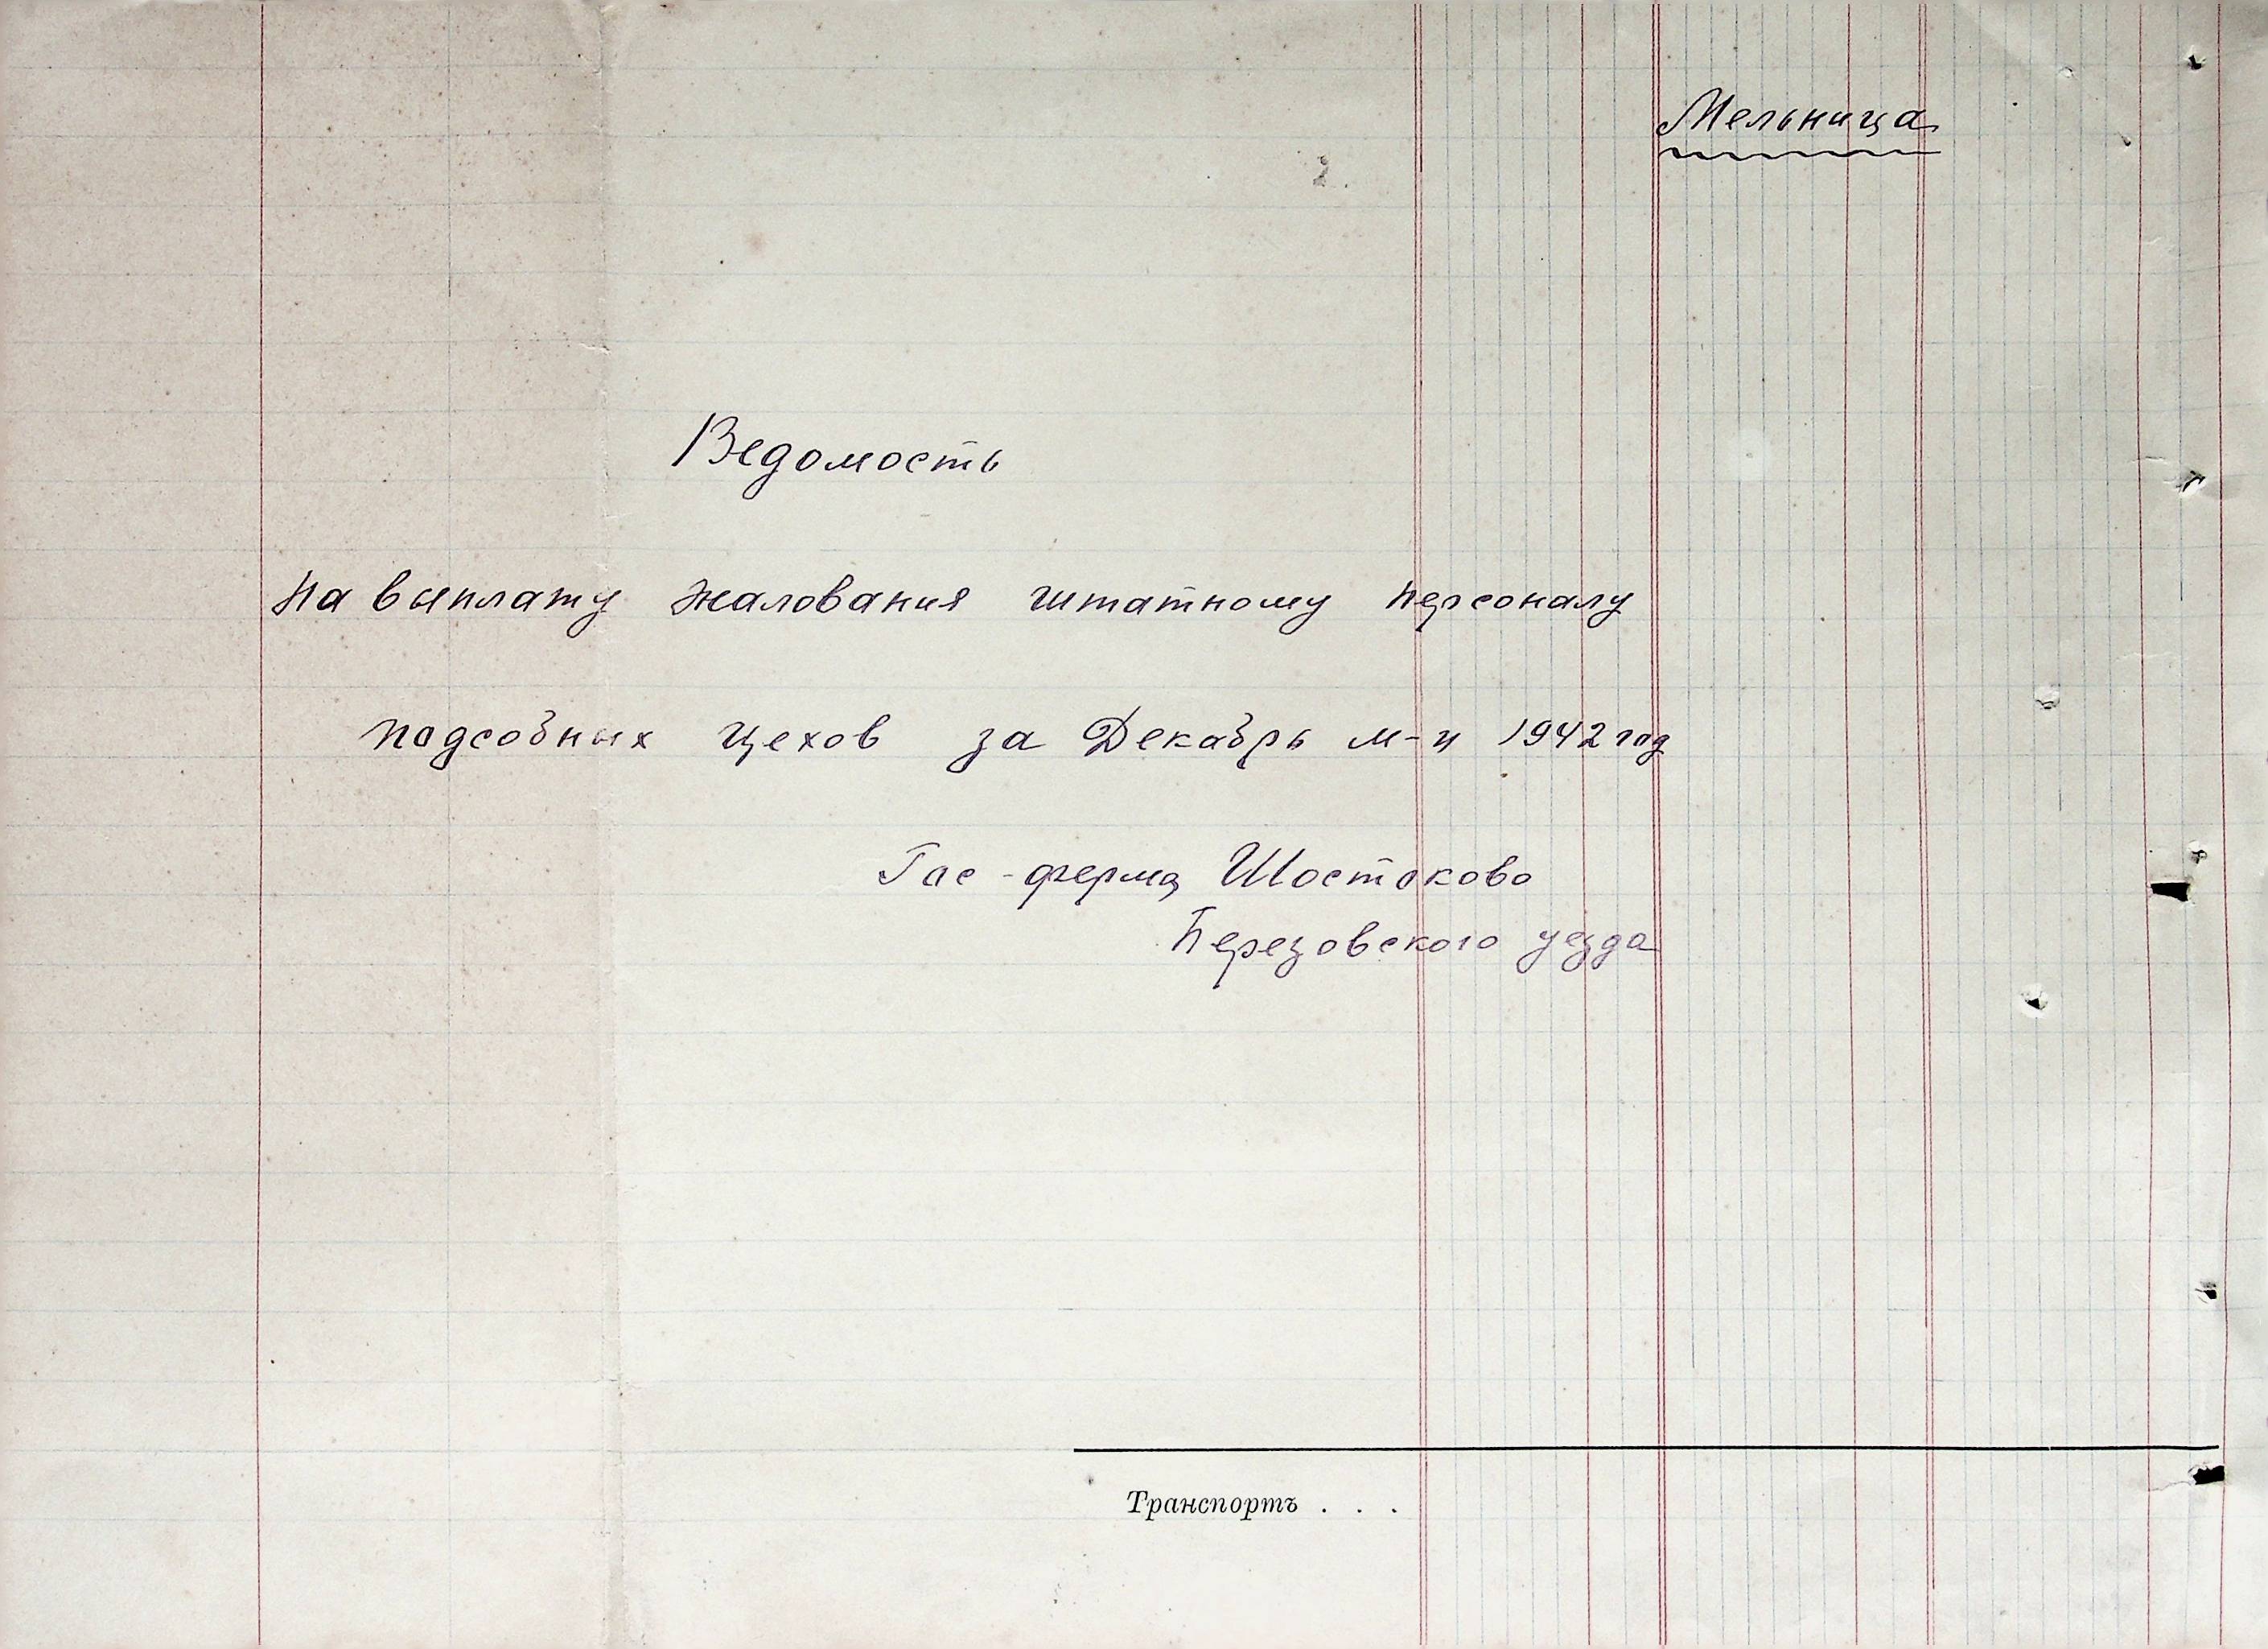 Мельница
Ведомость
на выплату жалования штатному персоналу
подсобных цехов за Декабрь м-ц 1942 год
Гос-ферма Шостаково
Березовского уезда
Транспортъ . . .